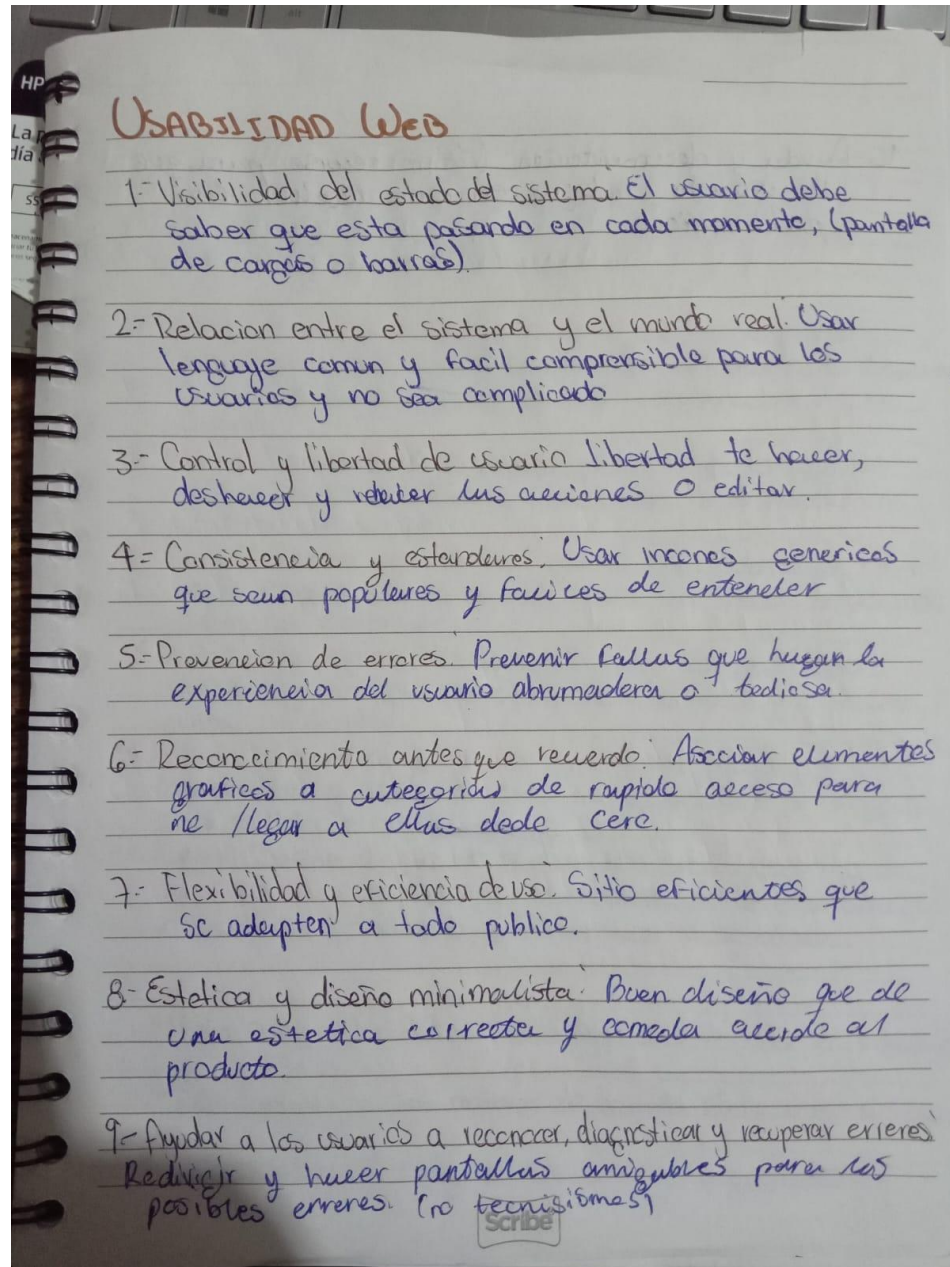 HP
La
día
USABILIDAD WEB
1.- Visibilidad del estado del sistema. El usuario debe
saber que esta pasando en cada momente, (pantalla
de cargas o barras)
2.- Relacion entre el sistema y el mundo real. Usar
lenguaje comun y facil comprensible para los
usuarios y no sea complicado
3.- Control y libertad de usuario libertad te hacer,
deshacer y las acciones o editar.
4.- Consistencia y estandares. Usar incones genericos
que sean populares y facices de entender
5.- Prevencion de errores. Prevenir fallas que hagan la
experiencia del usuario abrumadora o tediosa.
6.- Reconocimiento antes que recuerdo. Asociar elementes
graficos a categorias de rapido acceso para
no llegar a ellas dede cero.
7.- Flexibilidad y eficiencia de uso. Sitio eficientes que
se adapten a todo publico.
8.- Estetica y diseño minimalista. Buen diseño que de
una estetica correcta y comoda acorde al
producto.
9.- Ayudar a los usuarios a reconocer, diagnosticar y recuperar errores
Redirigir y hacer pantallas amigables para los
posibles errores. (no tecnisismos)
Scribe